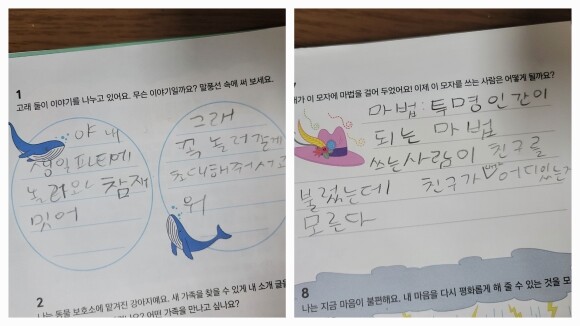 1
고래 둘이 이야기를 나누고 있어요. 무슨 이야기일까요? 말풍선 속에 써 보세요.
야 내
생일파티에
놀러와 참재
밋어
그래
꼭 놀러갈게
초대해줘서고
워
2
나는 동물 보호소에 맡겨진 강아지예요. 새 가족을 찾을 수 있게 내 소개 글을
어떤 가족을 만나고 싶나요?
이 모자에 마법을 걸어 두었어요! 이제 이 모자를 쓰는 사람은 어떻게 될까요?
마법:투명인간이
되는 마법
쓰는사람이 친구를
불렀는데 친구가 어디있는지
모른다
8
나는 지금 마음이 불편해요. 내 마음을 다시 평화롭게 해 줄 수 있는 것을 모